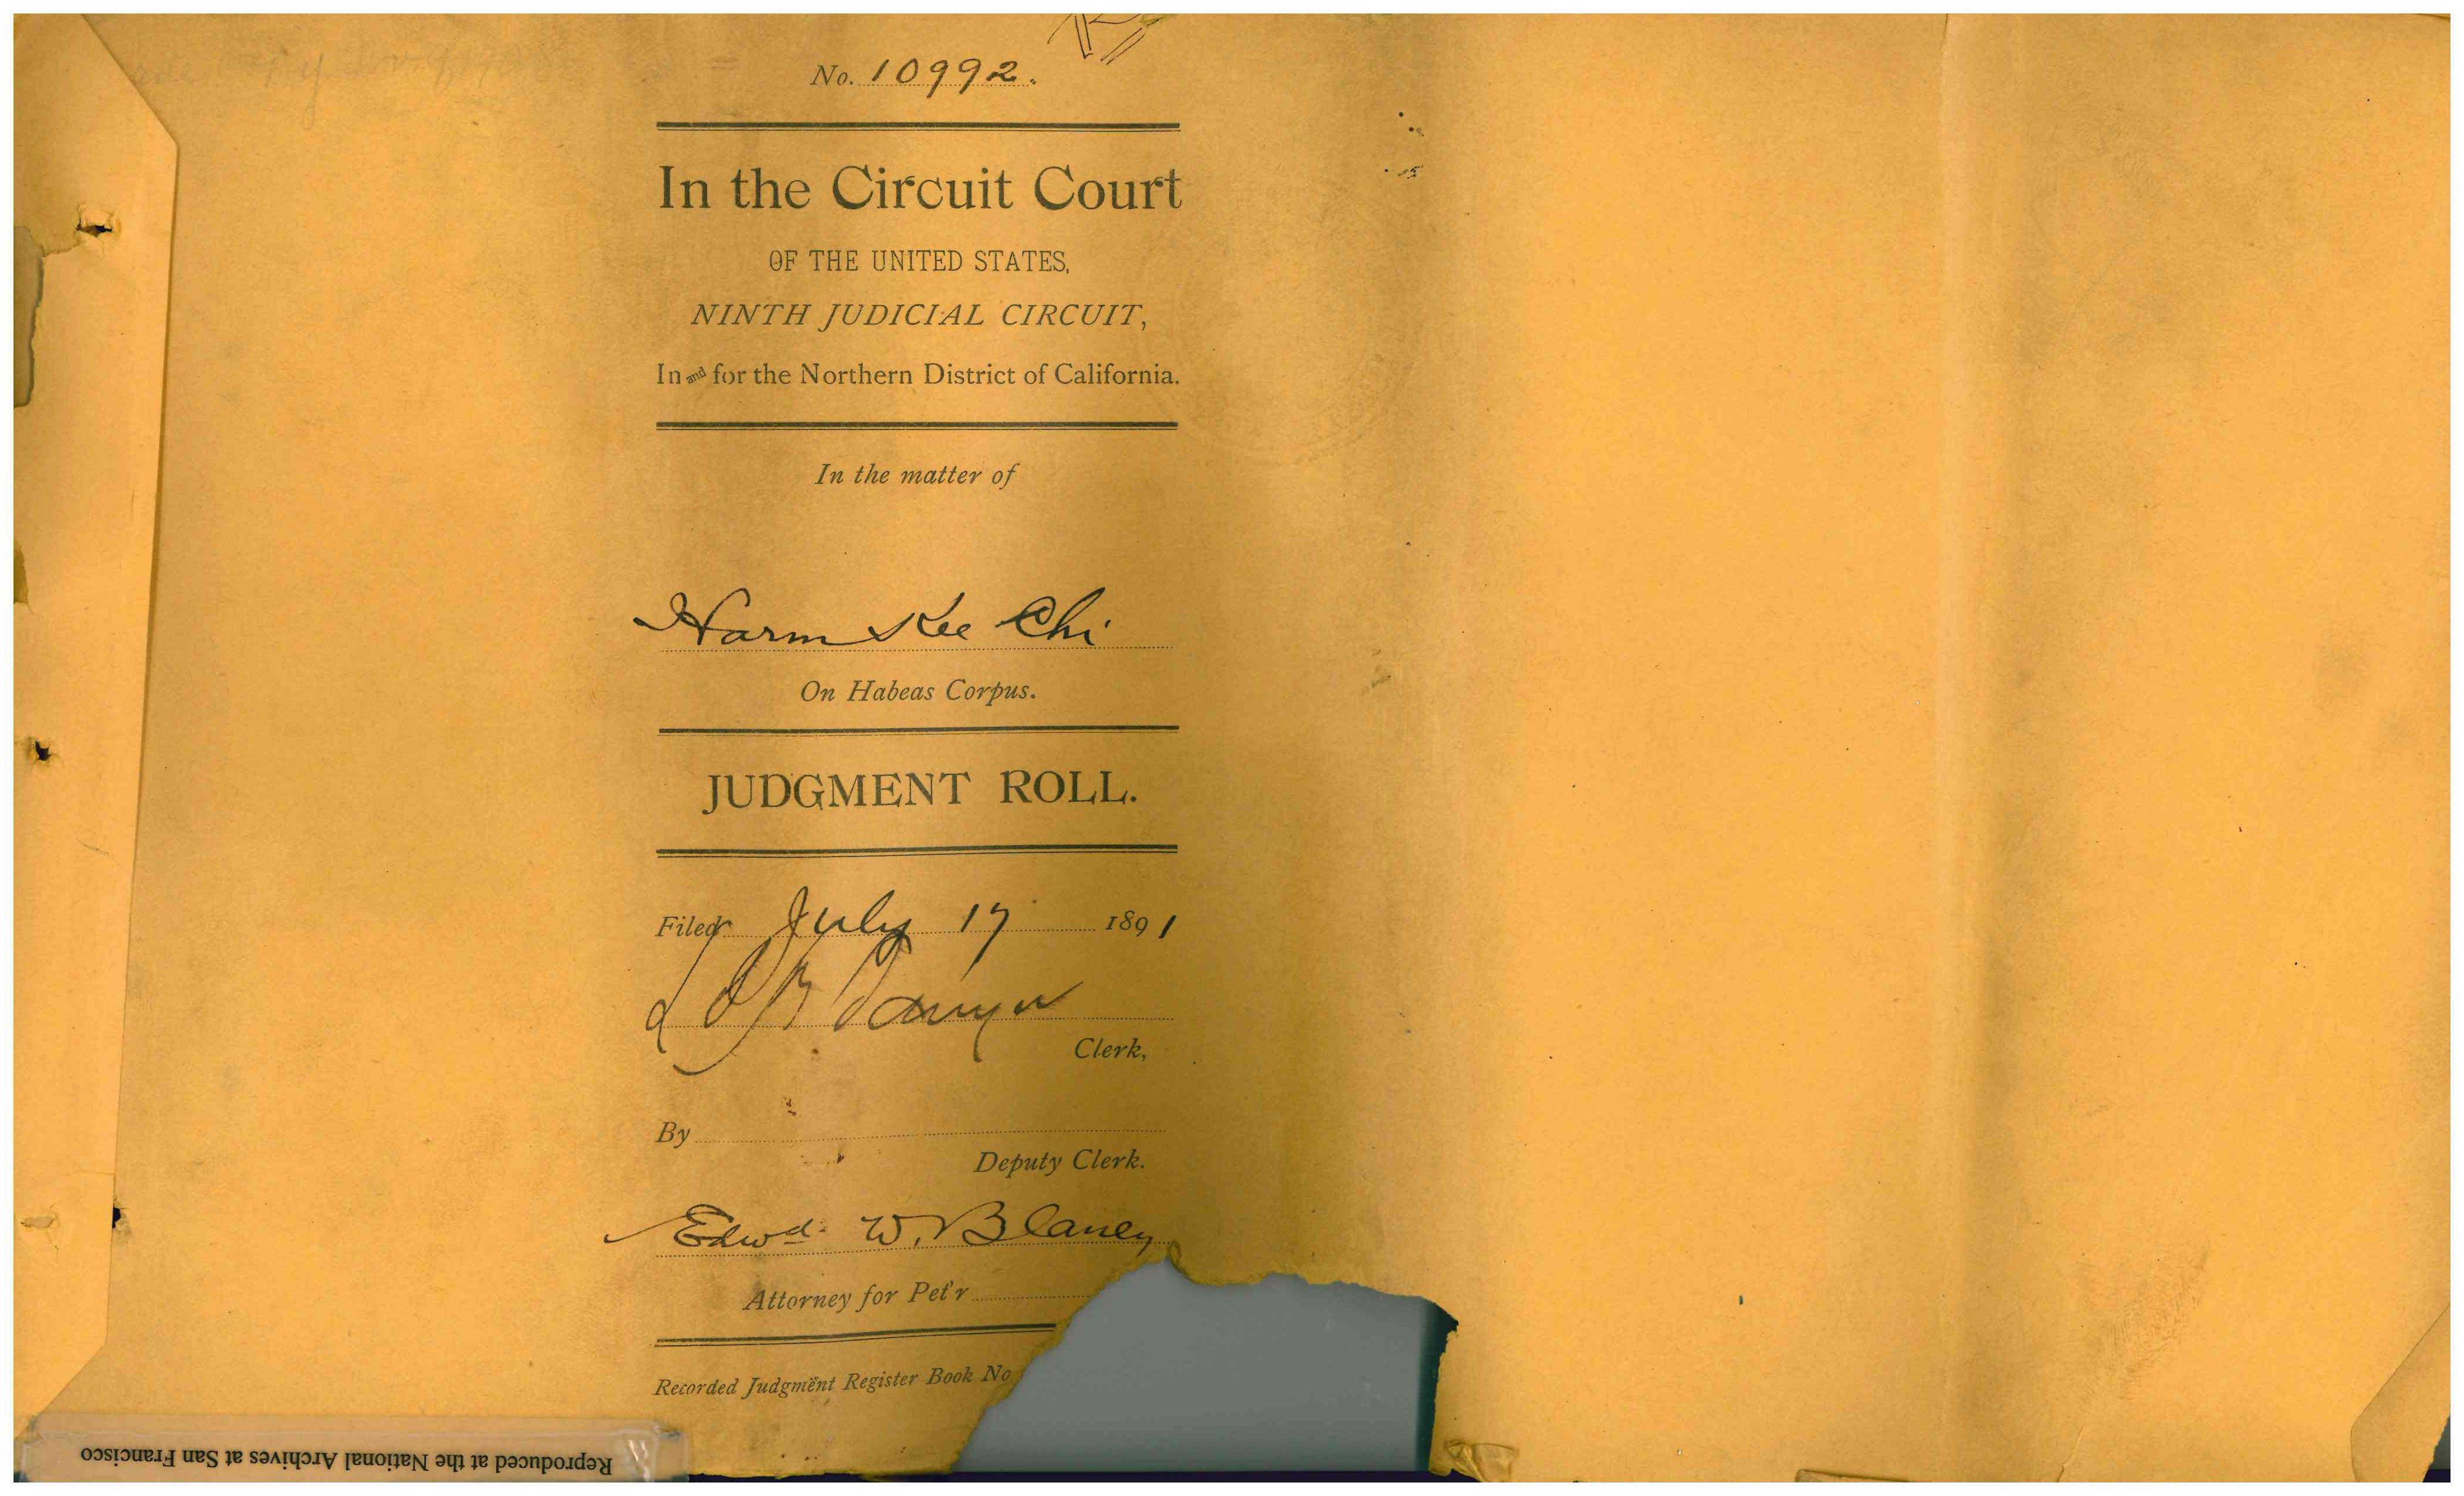 No. 10992.
In the Circuit Court
OF THE UNITED STATES,
NINTH JUDICIAL CIRCUIT,
In and for the Northern District of California.
In the matter of
Harm Kee Chi
On Habeas Corpus.
JUDGMENT ROLL.
Filed July 17 1891
Clerk,
By
Deputy Clerk.
Edwd. W. Blaney
Attorney for Pet'r
Recorded Judgment Register Book No
Reproduced at the National Archives at San Francisco